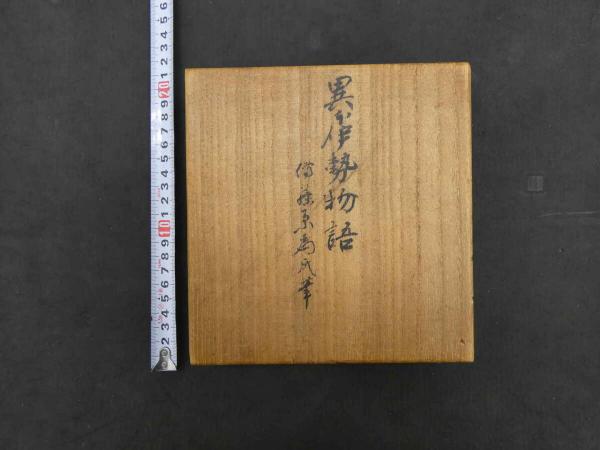 異本伊勢物語
傳藤原為氏筆
2 3 4 5 6 7 8 9 10 1 2 3 4 5 6 7 8 9 20 1 2 3 4 5 6